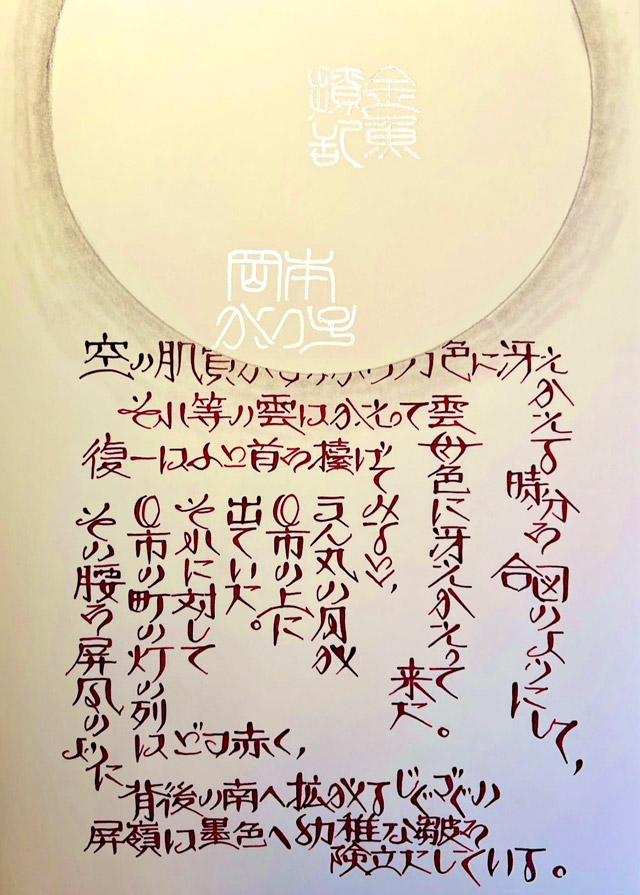 金魚撩乱
岡本かの子
空の肌質がすっかり刀色に冴え
かえる
時分を
合図のようにして、
それ等の雲はかえって雲
母色に冴えかえって
来た。
復一ははっと首を擡げ
てみると、
まん丸の月が
O市の上に
出ていた。
それに対して
O市の町の灯の列はどす赤く、
その腰を屏風のように
背後の南へ拡がるじぐざぐの
屏嶺は墨色へ幼稚な皺を
険立たしている。